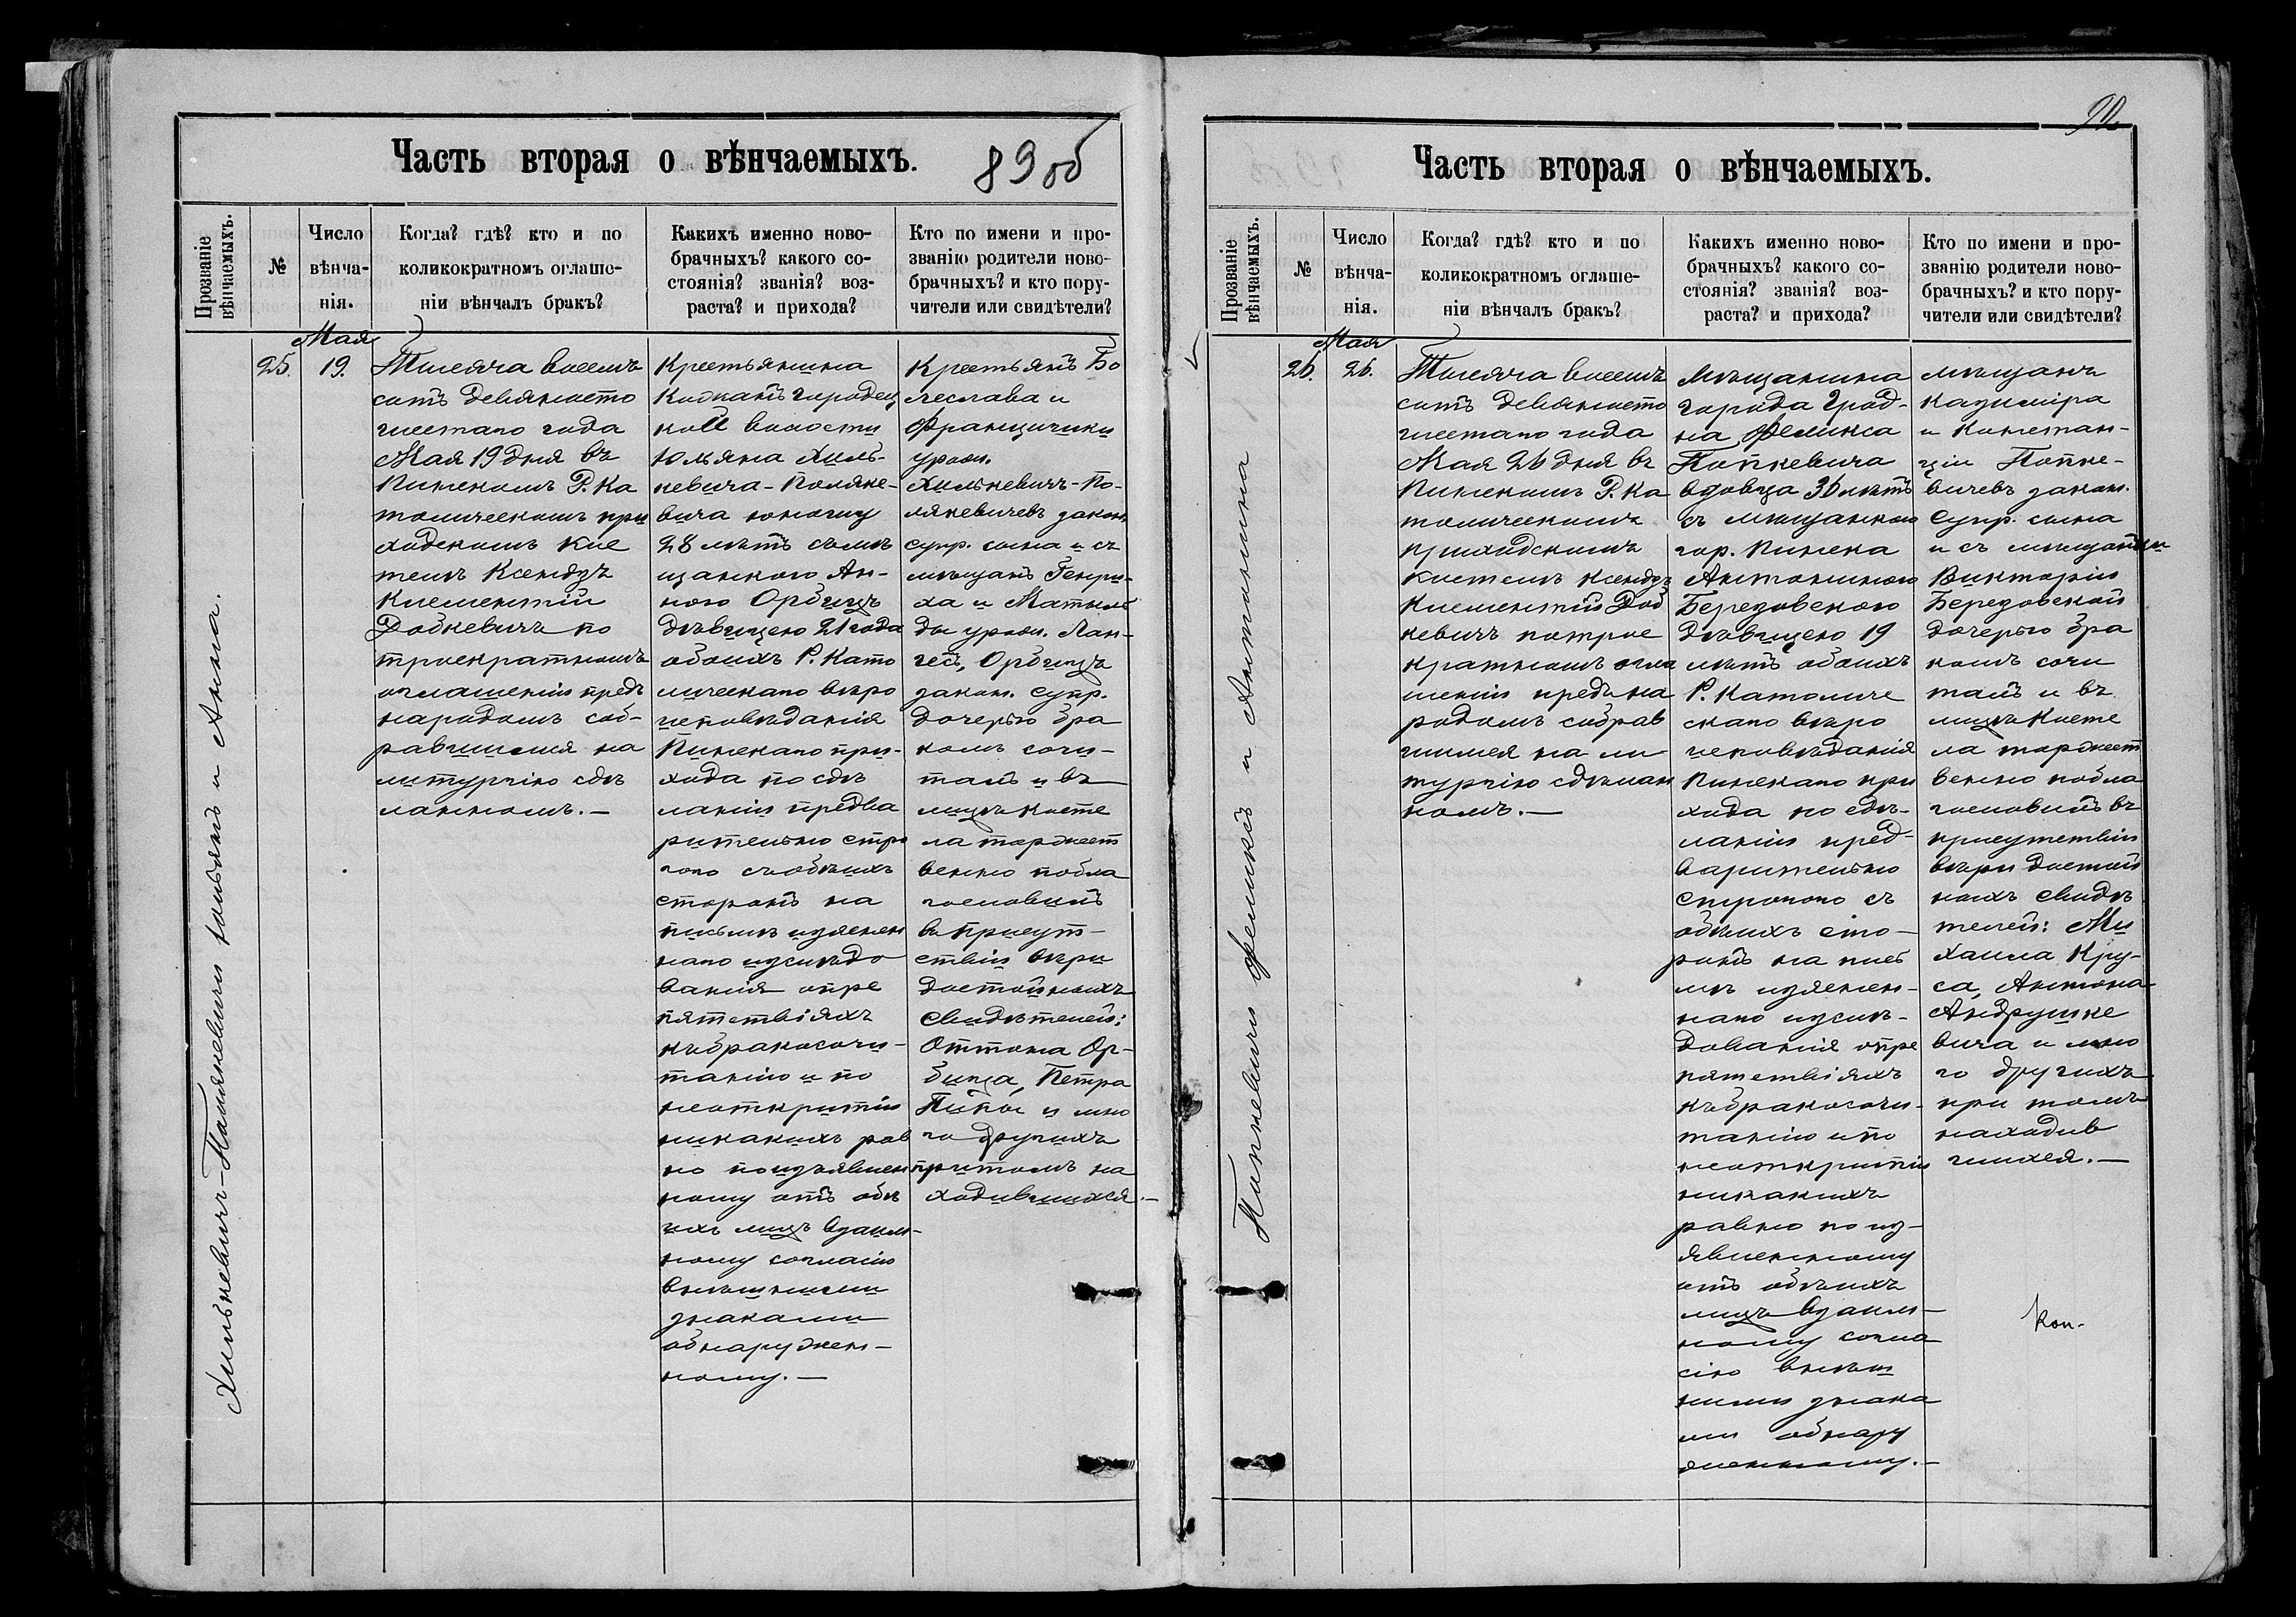 Часть вторая о вѣнчаемыхъ.
89 об
Прозваніе
вѣнчаемыхъ.
№
Число
вѣнча-
нія.
Когда? гдѣ? кто и по
коликократномъ оглаше-
ніи вѣнчалъ бракъ?
Какихъ именно ново-
брачныхъ? какого со-
стоянія? званія? воз-
раста? и прихода?
Кто по имени и про-
званію родители ново-
брачныхъ? и кто пору-
чители или свидѣтели?
Хилькевичъ-Поляневичи Юльянъ и Анна.
25.
Мая
19.
Тысяча восемь
сотъ девяносто
шестаго года
Мая 19 дня въ
Пинскомъ Р. Ка
толическомъ при
ходскомъ кос
телѣ Ксендзъ
Клементій
Добкевичъ по
троекратномъ
оглашеніи предъ
народомъ соб-
равшимся на
литургію сдѣ
ланномъ.—
Крестьянина
городец
кой волости
Юльяна Хиль-
кевича-Поляне-
вича юношу
28 лѣтъ съ мѣ
щанкою Ан-
ною Орбицъ
дѣвицею 21 года
обоихъ Р. Като
лическаго вѣро
исповѣданія
Пинскаго при-
хода по сдѣ
ланіи предва
рительно стро
гого съ обѣихъ
сторонъ на
письмѣ изъяснен
наго изслѣдо
ванія о пре
пятствіяхъ
къ бракосоче-
танію и по
неоткрытіи
никакихъ рав
но по изъявлен
ному отъ обѣ
ихъ лицъ взаим-
ному согласію
внѣшними
знаками
обнаружен-
ному.—
Крестьянъ Бо
леслава и
Францишки
урожд.
Хилькевичъ-По-
ляневичевъ закон.
супр. сына и съ
мѣщанъ Генри-
ха и Матиль
ды урожд. Лан-
ге, Орбицъ
закон. супр.
дочерью бра
комъ соче-
талъ и въ
лицѣ косте
ла торжест
венно побла
гословилъ
въ присут-
ствіи вѣры
достойныхъ
свидѣтелей:
Оттона Ор-
бица, Петра
и мно
го другихъ
при томъ на
ходившихся.—
90
Часть вторая о вѣнчаемыхъ.
Прозваніе
вѣнчаемыхъ.
№
Число
вѣнча-
нія.
Когда? гдѣ? кто и по
коликократномъ оглаше-
ніи вѣнчалъ бракъ?
Какихъ именно ново-
брачныхъ? какого со-
стоянія? званія? воз-
раста? и прихода?
Кто по имени и про-
званію родители ново-
брачныхъ? и кто пору-
чители или свидѣтели?
Попкевичи Феликсъ и Антонина
26.
Мая
26.
Тысяча восемь
сотъ девяносто
шестаго года
Мая 26 дня въ
Пинскомъ Р. Ка
толическомъ
приходскомъ
костелѣ Ксендзъ
Клементій Доб
кевичъ по трое
кратномъ огла
шеніи предъ на
родомъ собрав
шимся на ли
тургію сдѣлан
номъ.—
Мѣщанина
города Грод-
на Феликса
Попкевича
вдовца 36 лѣтъ
съ мѣщанкою
гор. Пинска
Антониною
Березовскою
дѣвицею 19
лѣтъ обоихъ
Р. Католиче
скаго вѣро
исповѣданія
Пинскаго при
хода по сдѣ-
ланіи пред-
варительно
строгого съ
обѣихъ сто-
ронъ на пись
мѣ изъяснен-
наго изслѣ-
дованія о пре
пятствіяхъ
къ бракосоче-
танію и по
неоткрытіи
никакихъ
равно по из-
явленному
отъ обѣихъ
лицъ взаим-
ному согла
сію внѣш
ними знака
ми обнару
женному.—
мѣщанъ
Казиміра
и Констан-
ціи Попке-
вичевъ закон.
супр. сына
и съ мѣщанки
Викторіи
Березовской
дочерью бра
комъ соче
талъ и въ
лицѣ косте
ла торжест
венно побла
гословилъ въ
присутствіи
вѣры достой
ныхъ свидѣ
телей: Ми
хаила Кру-
са, Антона
Андрушке
вича и мно
го другихъ
при томъ
находив
шихся.—
Коп.